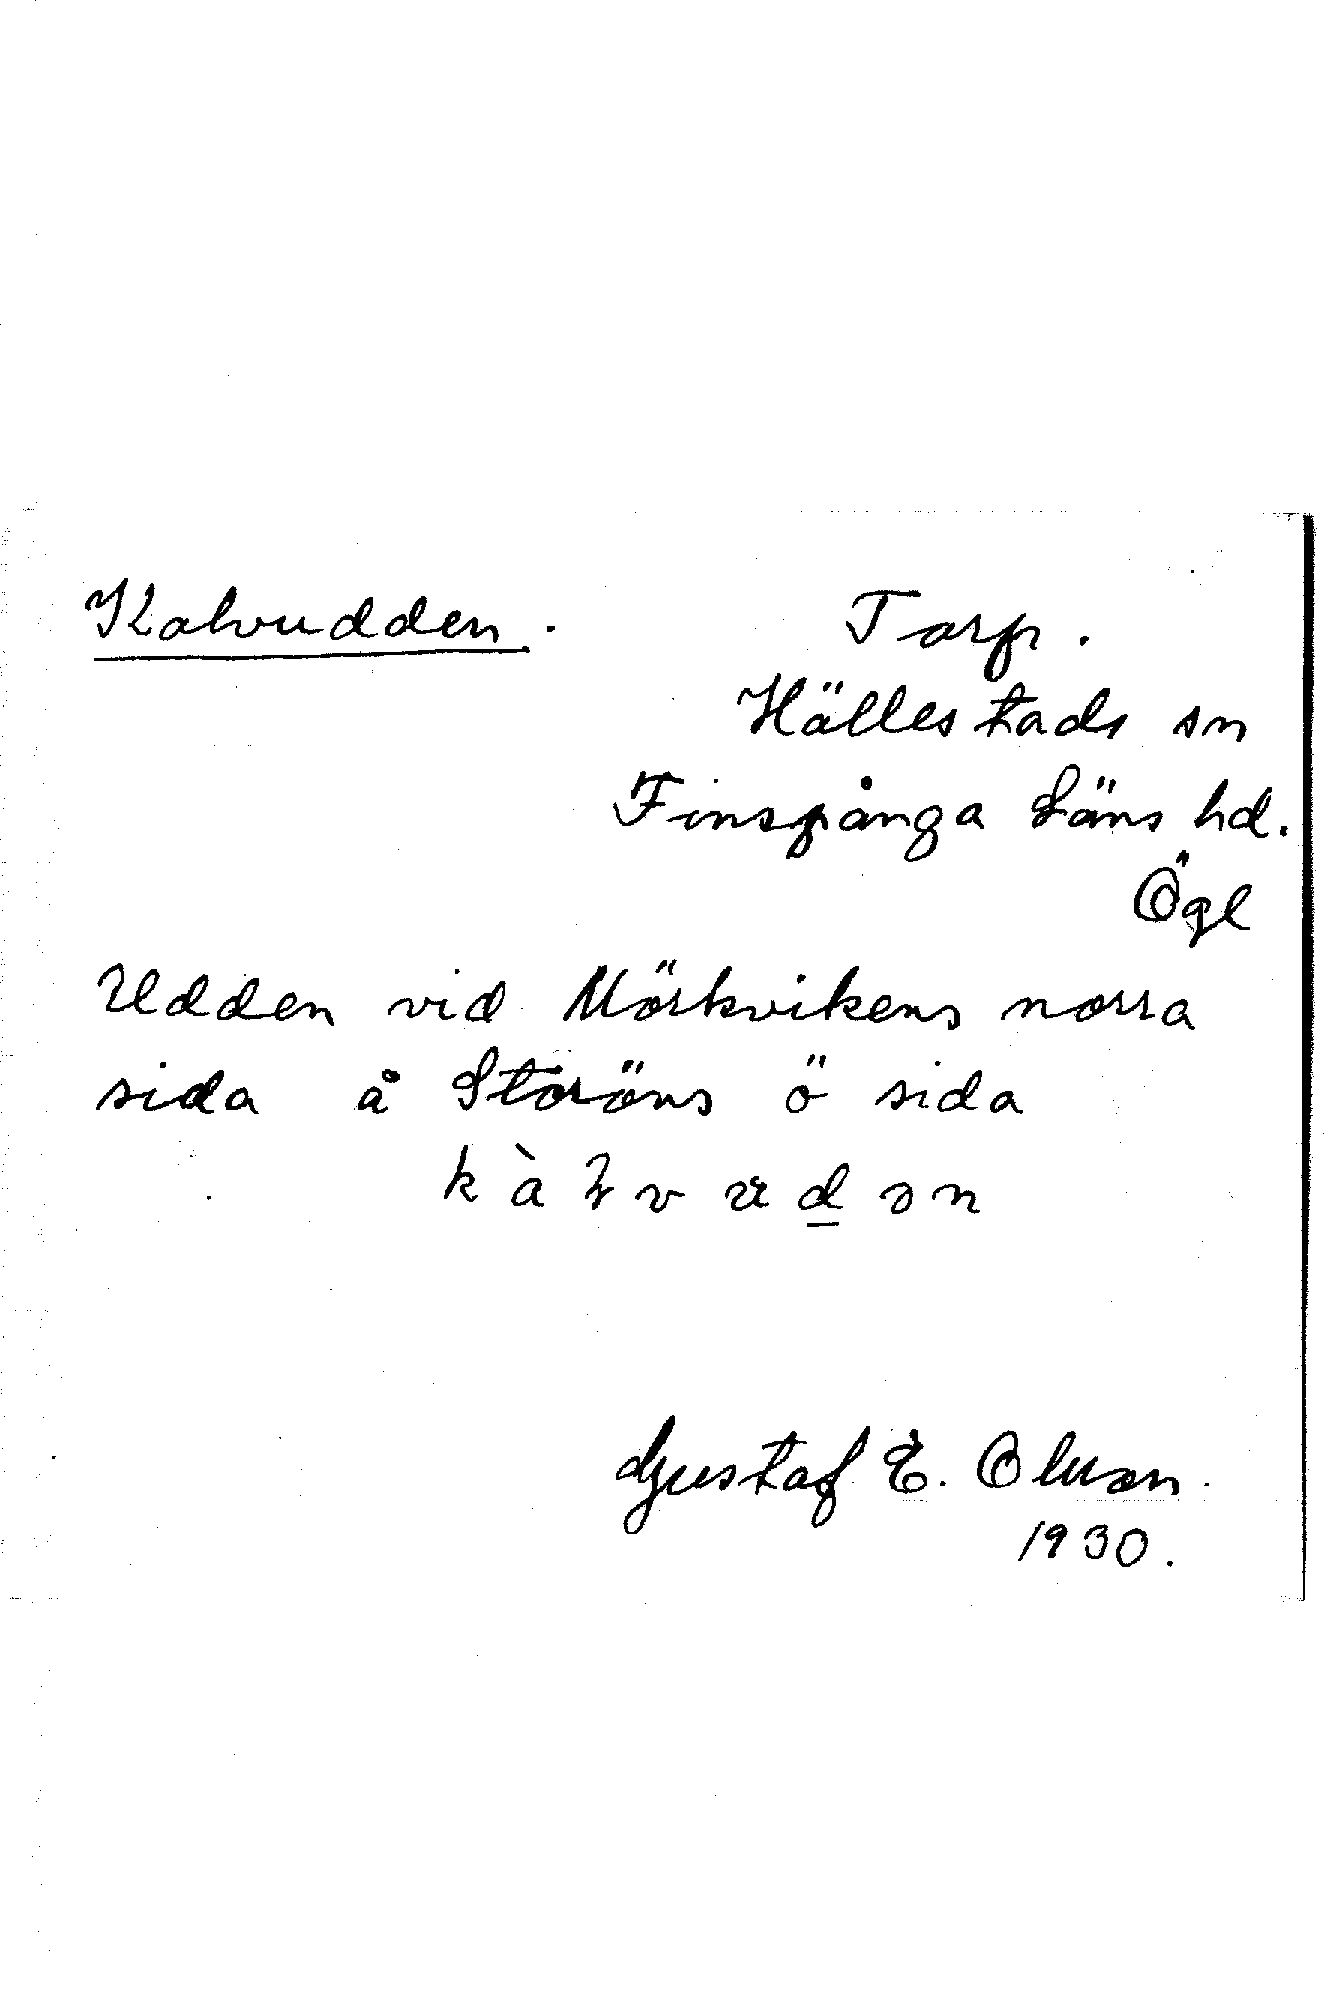 Kalvudden.
Torp.
Hällestads sn
Finspånga Läns hd.
Ögl
Udden vid Mörkvikens norra
sida å Storöns ö sida
kàlvud̲ən
Gustaf E. Olsson.
1930.